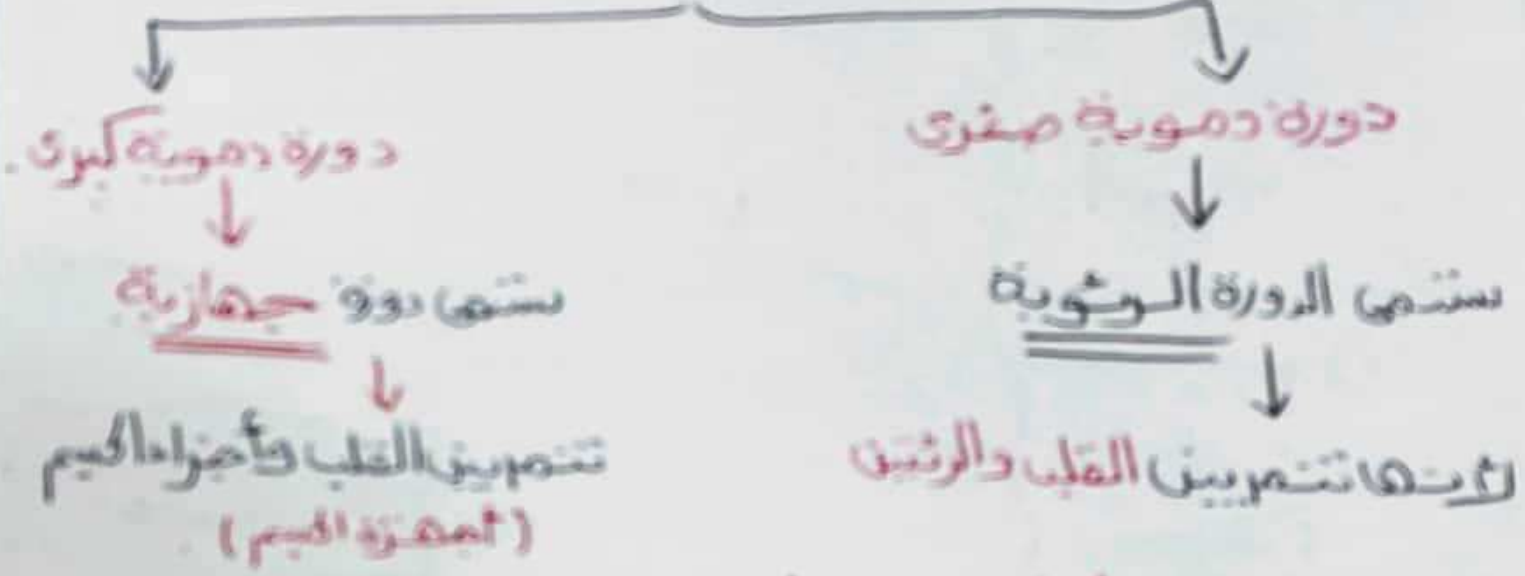 دورة دموية صغرى
تسمى الدورة الرئوية
لأنها تتم بين القلب والرئتين
دورة دموية كبرى.
تسمى دورة جهازية
تتم بين القلب وأجزاء الجسم
(أجهزة الجسم)